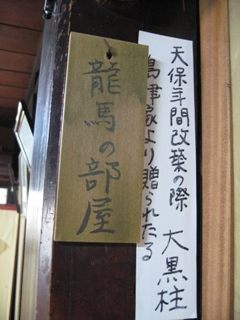 龍馬の部屋
天保年間改築の際
島津家より贈られたる
大黒柱